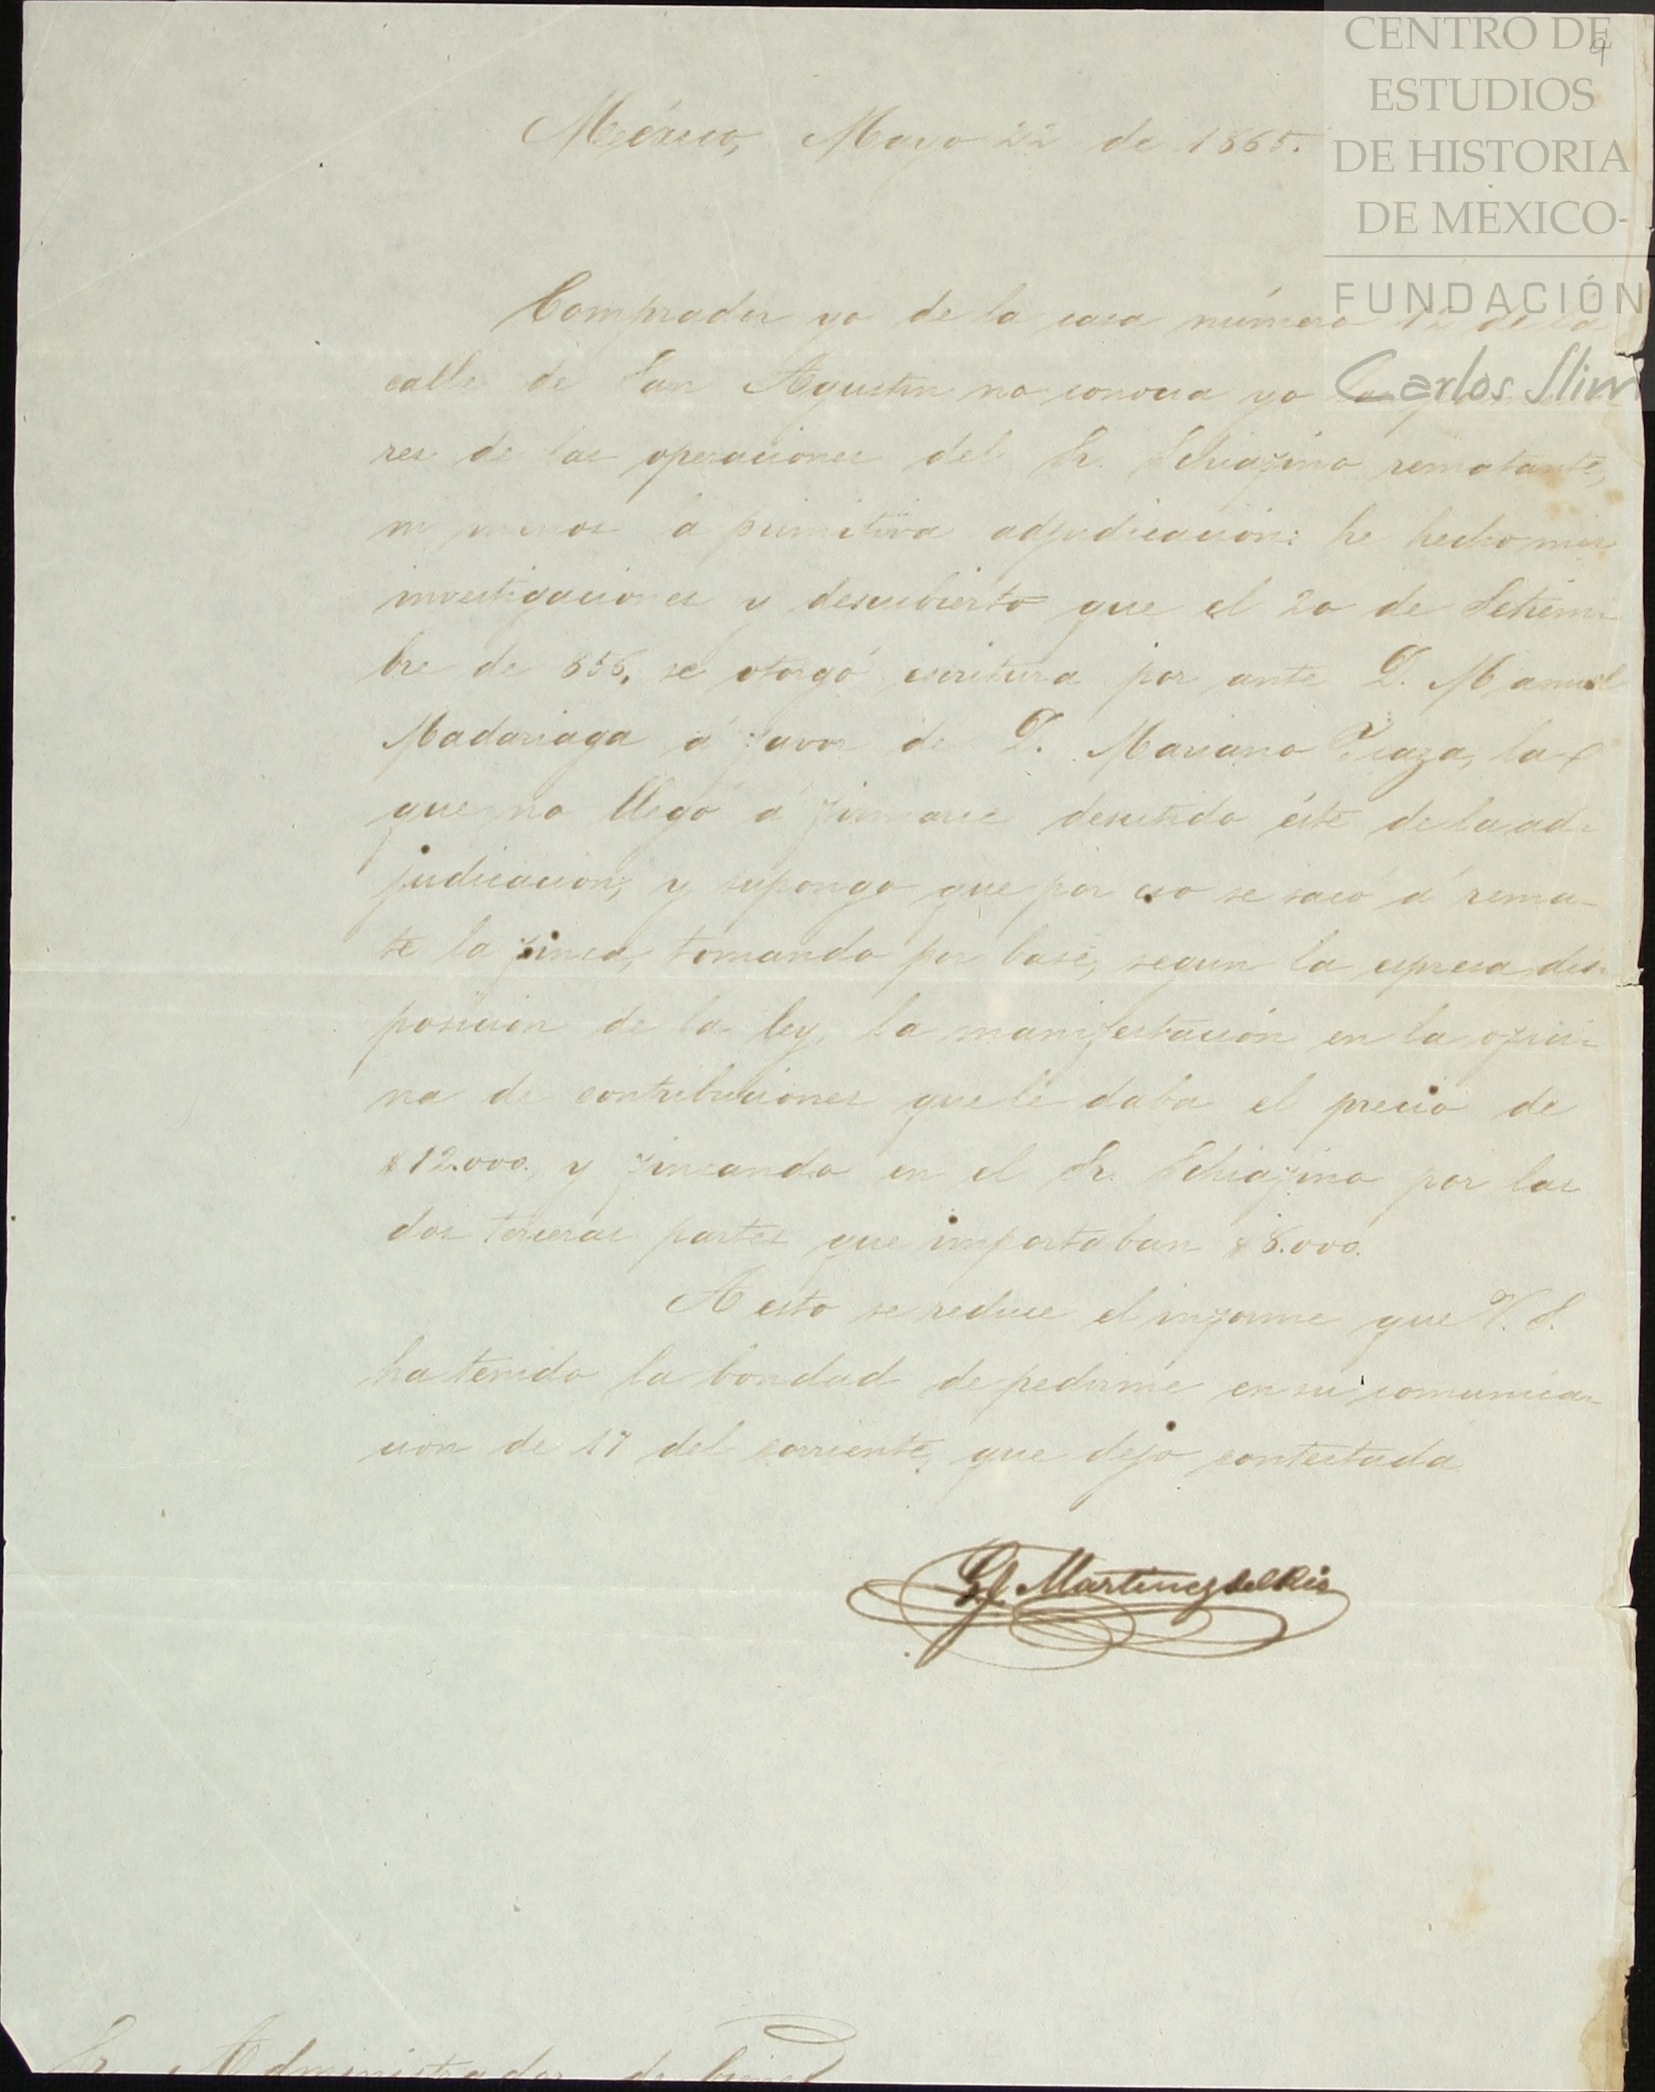 CENTRO DE
ESTUDIOS
DE HISTORIA
DE MEXICO-
FUNDACIÓN
Carlos Slim
México, Mayo 22 de 1865.
Comprador yo de la casa número 12 de la
calle de San Agustin no conocia yo
res de las operaciones del Sr. Schiafino rematante,
ni menos la primitiva adjudicación: he hecho mis
investigaciones y descubierto que el 20 de Setiem-
bre de 856, se otorgó escritura por ante D. Manuel
Madariaga á favor de D. Mariano Icaza, la
que no llegó á firmarse desistido éste de la ad-
judicacion, y supongo que por eso se sacó á rema-
te la finca, tomando por base, segun la espresa dis-
posicion de la ley, la manifestación en la ofici-
na de contribuciones que le daba el precio de
$12.000. y fincando en el Sr. Schiafino por las
dos terceras partes que importaban $8.000.
A esto se reduce el informe que V. S.
ha tenido la bondad de pedirme en su comunica-
cion de 17 del corriente, que dejo contestada
Martinez del Rio
Sr. Administrador de bienes